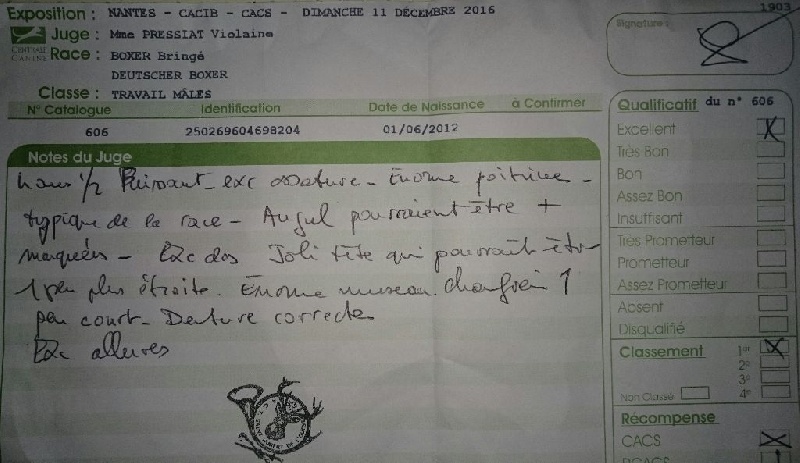 Exposition : NANTES - CACIB - CACS - DIMANCHE 11 DÉCEMBRE 2016
1903
Juge : Mme PRESSIAT Violaine
Signature :
CENTRALE CANINE
Race : BOXER Bringé
DEUTSCHER BOXER
Classe : TRAVAIL MÂLES
N° Catalogue Identification Date de Naissance à Confirmer
606 250269604698204 01/06/2012
Notes du Juge
1/2 Puissant - exc ossature - Énorme poitrine -
typique de la race - Angul pourraient être +
marquées - Exc dos Joli tête qui pourrait êtr
1 peu plus étroite. Énorme museau. chanfrein 1
peu court - Denture correcte
Exc allures
Qualificatif du n° 606
Excellent
Très Bon
Bon
Assez Bon
Insuffisant
Très Prometteur
Prometteur
Assez Prometteur
Absent
Disqualifié
Classement 1er
2e
3e
Non Classé 4e
Récompense
CACS
RCACS